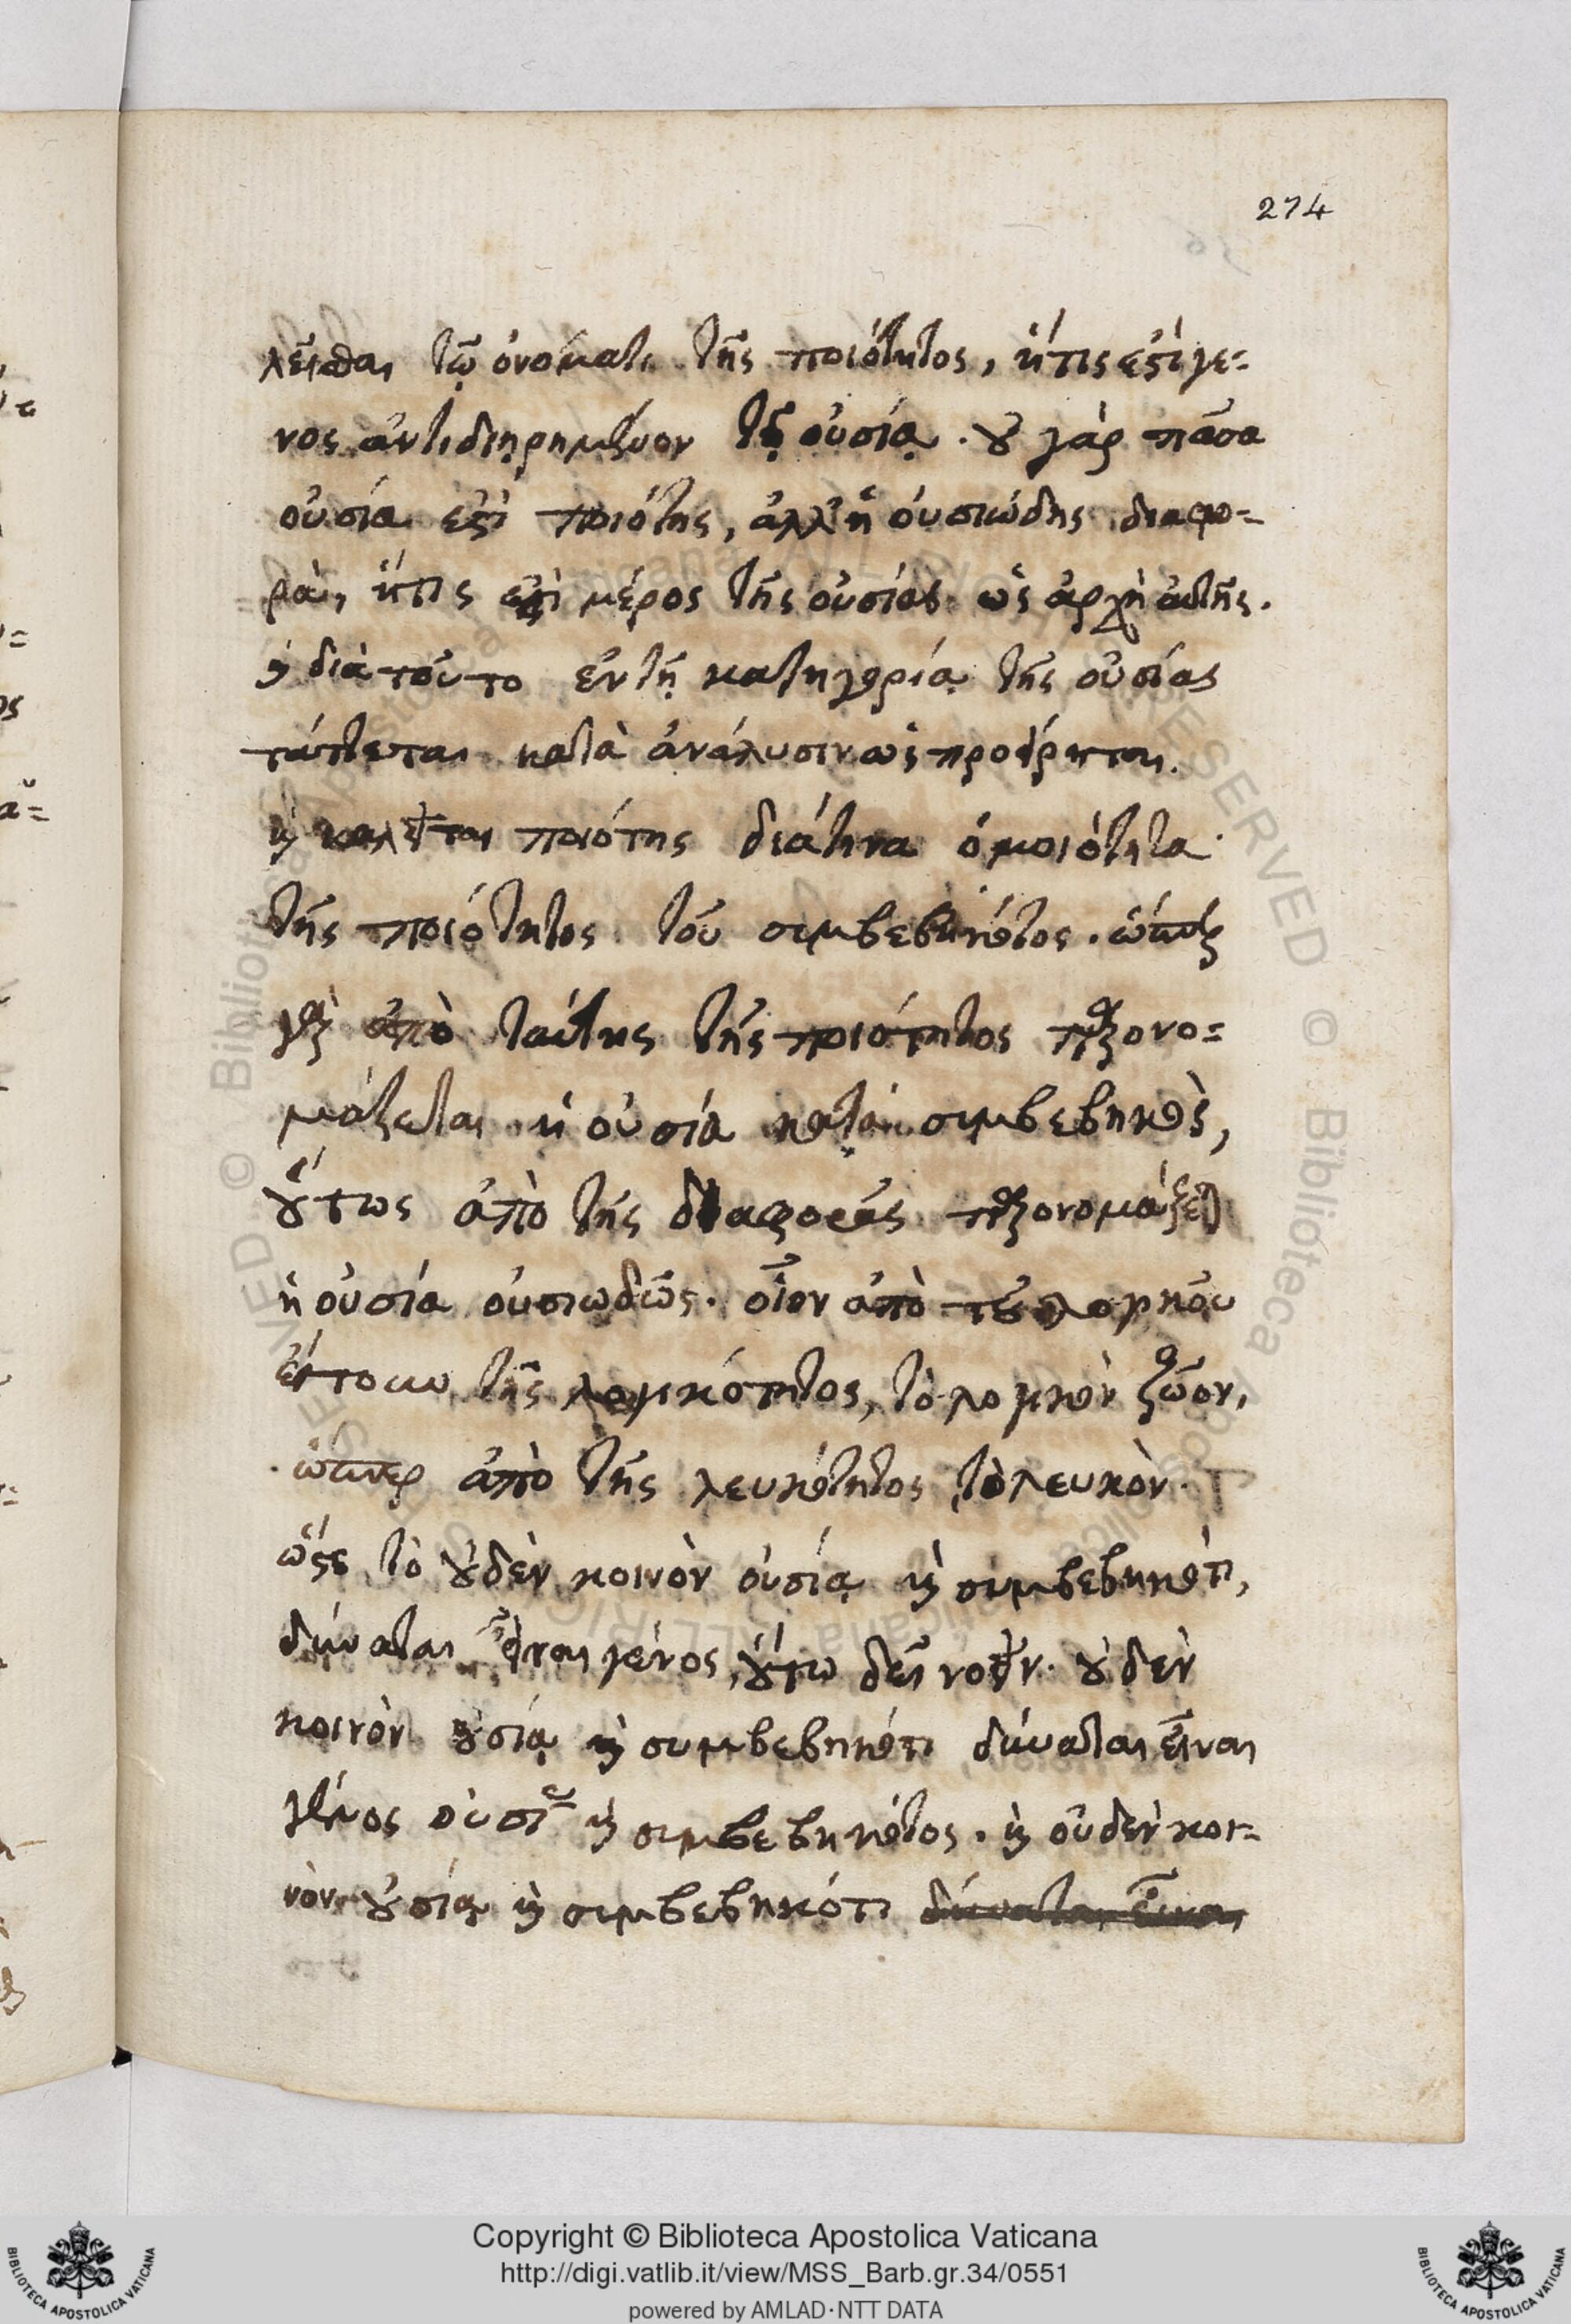 274
λεῖσθαι τῷ ὀνόματι τῆς ποιότητος, ἥτις ἐστὶ γέ-
νος ἀντιδιῃρημένον τῇ οὐσίᾳ. οὐ γὰρ πᾶσα
οὐσία ἐστὶ ποιότης, ἀλλ' ἡ οὐσιώδης διαφο-
ρὰ, ἥτις ἐστὶ μέρος τῆς οὐσίας ὡς ἀρχὴ αὐτῆς.
καὶ διὰ τοῦτο ἐν τῇ κατηγορίᾳ τῆς οὐσίας
τάττεται κατὰ ἀνάλυσιν ὡς προείρηται.
καὶ καλεῖται ποιότης διά τινα ὁμοιότητα
τῆς ποιότητος τοῦ συμβεβηκότος. ὥσπερ
γὰρ ἀπὸ ταύτης τῆς ποιότητος παρονο-
μάζεται ἡ οὐσία κατὰ συμβεβηκὸς,
οὕτως ἀπὸ τῆς διαφορᾶς παρονομάζεται
ἡ οὐσία οὐσιωδῶς. οἷον ἀπὸ τοῦ λογικοῦ
ἤτοι τῆς λογικότητος, τὸ λογικὸν ζῷον,
ὥσπερ ἀπὸ τῆς λευκότητος τὸ λευκὸν.
ὥστε τὸ οὐδὲν κοινὸν οὐσίᾳ καὶ συμβεβηκότι,
δύναται εἶναι γένος, οὕτω δεῖ νοεῖν. οὐδὲν
κοινὸν οὐσίᾳ καὶ συμβεβηκότι δύναται εἶναι
γένος οὐσίας καὶ συμβεβηκότος. καὶ οὐδὲν κοι-
νὸν οὐσίᾳ καὶ συμβεβηκότι δύναται εἶναι
Copyright © Biblioteca Apostolica Vaticana
http://digi.vatlib.it/view/MSS_Barb.gr.34/0551
powered by AMLAD·NTT DATA